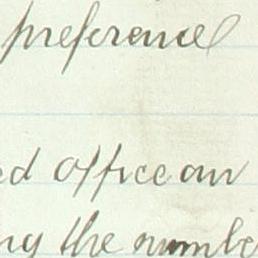 preference
ed office an
ng the numbe